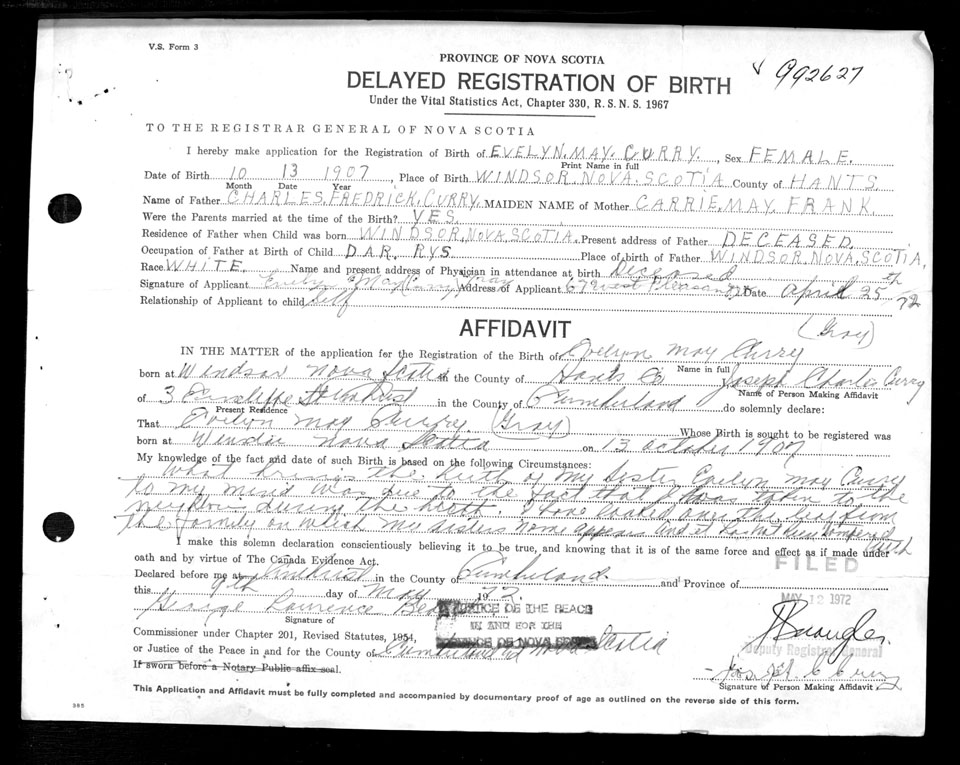 V.S. Form 3
PROVINCE OF NOVA SCOTIA
✓ 992627
DELAYED REGISTRATION OF BIRTH
Under the Vital Statistics Act, Chapter 330, R.S.N.S. 1967
TO THE REGISTRAR GENERAL OF NOVA SCOTIA
I hereby make application for the Registration of Birth of EVELYN. MAY. CURRY. , Sex FEMALE.
Print Name in full
Date of Birth 10 13 1907 , Place of Birth WINDSOR. NOVA. SCOTIA County of HANTS
Month Date Year
Name of Father CHARLES. FREDRICK. CURRY. MAIDEN NAME of Mother CARRIE. MAY. FRANK.
Were the Parents married at the time of the Birth? YES.
Residence of Father when Child was born WINDSOR, NOVA, SCOTIA. Present address of Father DECEASED.
Occupation of Father at Birth of Child DAR. RYS. Place of birth of Father WINDSOR, NOVA, SCOTIA.
Race WHITE. Name and present address of Physician in attendance at birth Deceased
Signature of Applicant Evelyn May Curry Gray Address of Applicant 67 West Pleasant Date April 25th 72
Relationship of Applicant to child Self
AFFIDAVIT
(Gray)
IN THE MATTER of the application for the Registration of the Birth of Evelyn May Curry
Name in full
born at Windsor Nova Scotia in the County of Hants Co Joseph Charles Curry
Name of Person Making Affidavit
of 3 Amherst in the County of Cumberland do solemnly declare:
Present Residence
That Evelyn May Curry (Gray) Whose Birth is sought to be registered was
born at Windsor Nova Scotia on 13 October 1907
My knowledge of the fact and date of such Birth is based on the following Circumstances:
What brings the birth of my sister Evelyn May Curry
to my mind was due to the fact that I was taken to the
neighbors during the birth. I have looked over the
the family on which my sisters name appear and it has not been tampered with
I make this solemn declaration conscientiously believing it to be true, and knowing that it is of the same force and effect as if made under
oath and by virtue of The Canada Evidence Act.
FILED
Declared before me at Amherst in the County of Cumberland and Province of
this 9th day of May 1972.
MAY 12 1972
George Lawrence
JUSTICE OF THE PEACE
IN AND FOR THE
PROVINCE OF NOVA SCOTIA
Signature of
Commissioner under Chapter 201, Revised Statutes, 1954,
or Justice of the Peace in and for the County of Cumberland Nova Scotia
Deputy Registrar General
If sworn before a Notary Public affix seal.
Joseph C Curry
Signature of Person Making Affidavit
This Application and Affidavit must be fully completed and accompanied by documentary proof of age as outlined on the reverse side of this form.